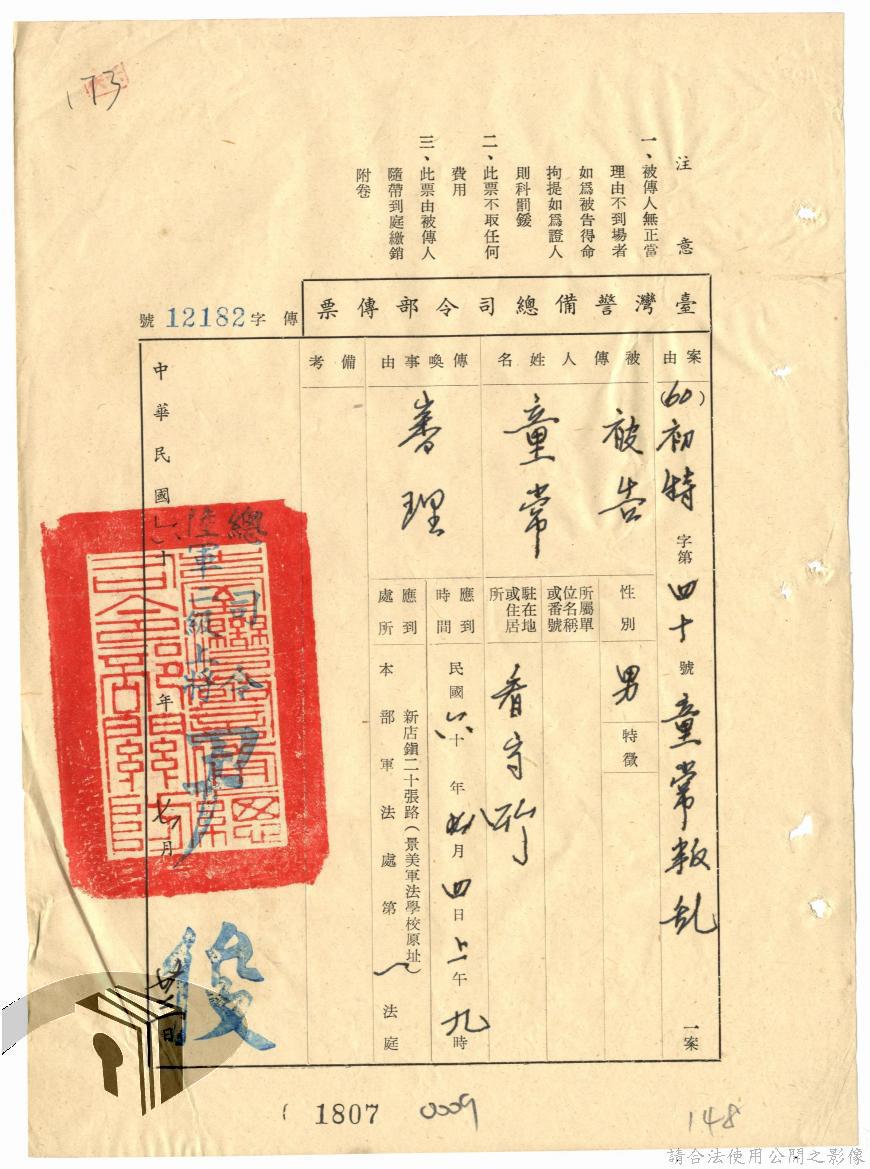 173
注意
一、被傳人無正當
理由不到場者
如爲被告得命
拘提如爲證人
則科罰鍰
二、此票不取任何
費用
三、此票由被傳人
隨帶到庭繳銷
附卷
臺灣警備總司令部傳票
傳字12182號
案由
(60)初特字第四十號童常叛乱一案
被傳人姓名
被告
童常
性別
男
特徵
所屬單
位名稱
或番號
駐在地
或住居
所
看守所
傳喚事由
審理
應到
時間
民國六十年 月四日上午九時
應到
處所
新店鎮二十張路(景美軍法學校原址)
本部軍法處第一法庭
備考
總司令
陸軍二級上將
中華民國六十年七月廿三日
1807
0009
148
請合法使用公開之影像